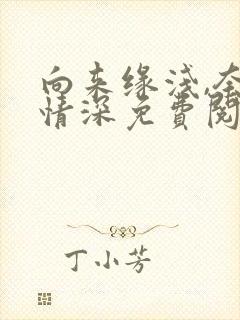 向来缘浅,奈
情深免费阅
丁小芳